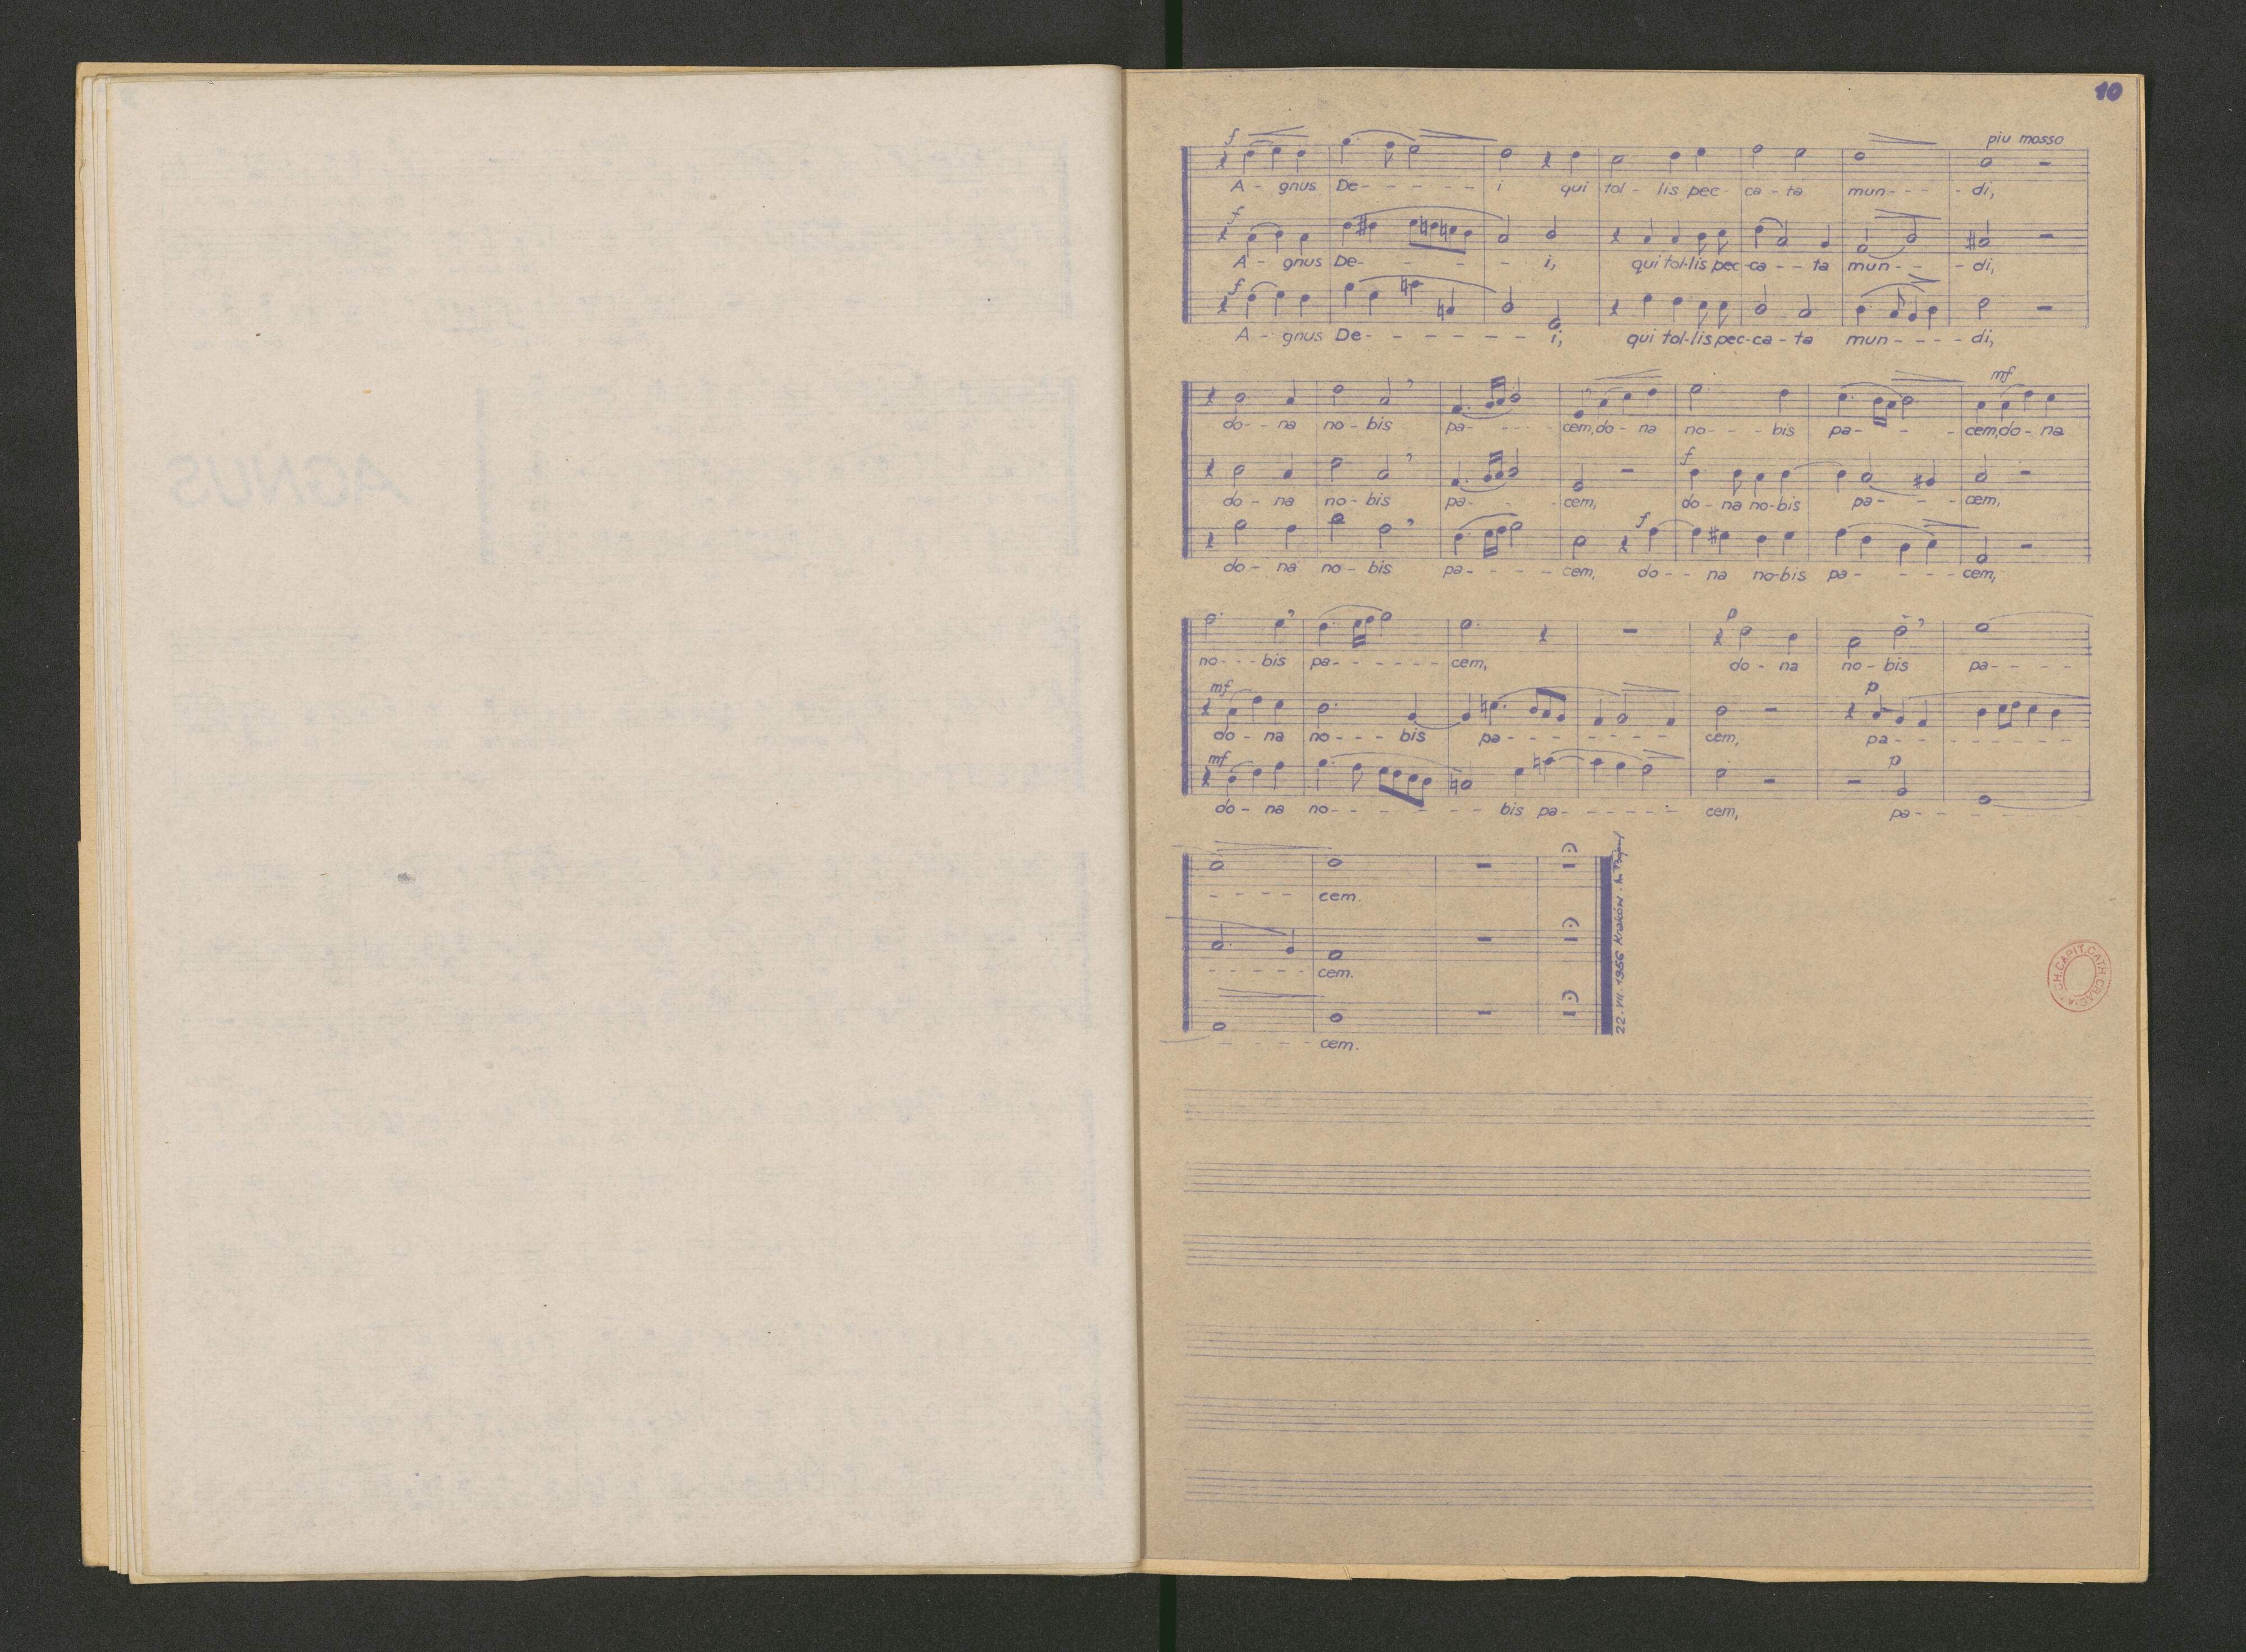 10
piu mosso
f
A - gnus De - - - - - - i qui tol - lis pec - ca - ta mun - - - - di,
f
A - gnus De - - - - - i, qui tol-lis pec-ca - - ta mun - - - di,
f
A - gnus De - - - - - - - i, qui tol-lis pec-ca - ta mun - - - - di,
mf
do - - na no - bis pa - - - - cem, do - na no - - - bis pa - - - - cem, do - na
f
do - na no - bis pa - - cem, do - na no-bis pa - - - cem,
f
do - na no - bis pa - - - - cem, do - - na no-bis pa - - - - cem,
p
no - - - bis pa - - - - - - cem, do - na no - bis pa - - - -
mf p
do - na no - - - bis pa - - - - - - - cem, pa - - - - - - - -
mf p
do - na no - - - - - - - bis pa - - - - - - cem, pa - - -
- - - - cem.
- - - - - cem.
- - - - cem.
22. VII. 1956 Kraków.
AGNUS
CH. CAPIT. CATH. CRAC.